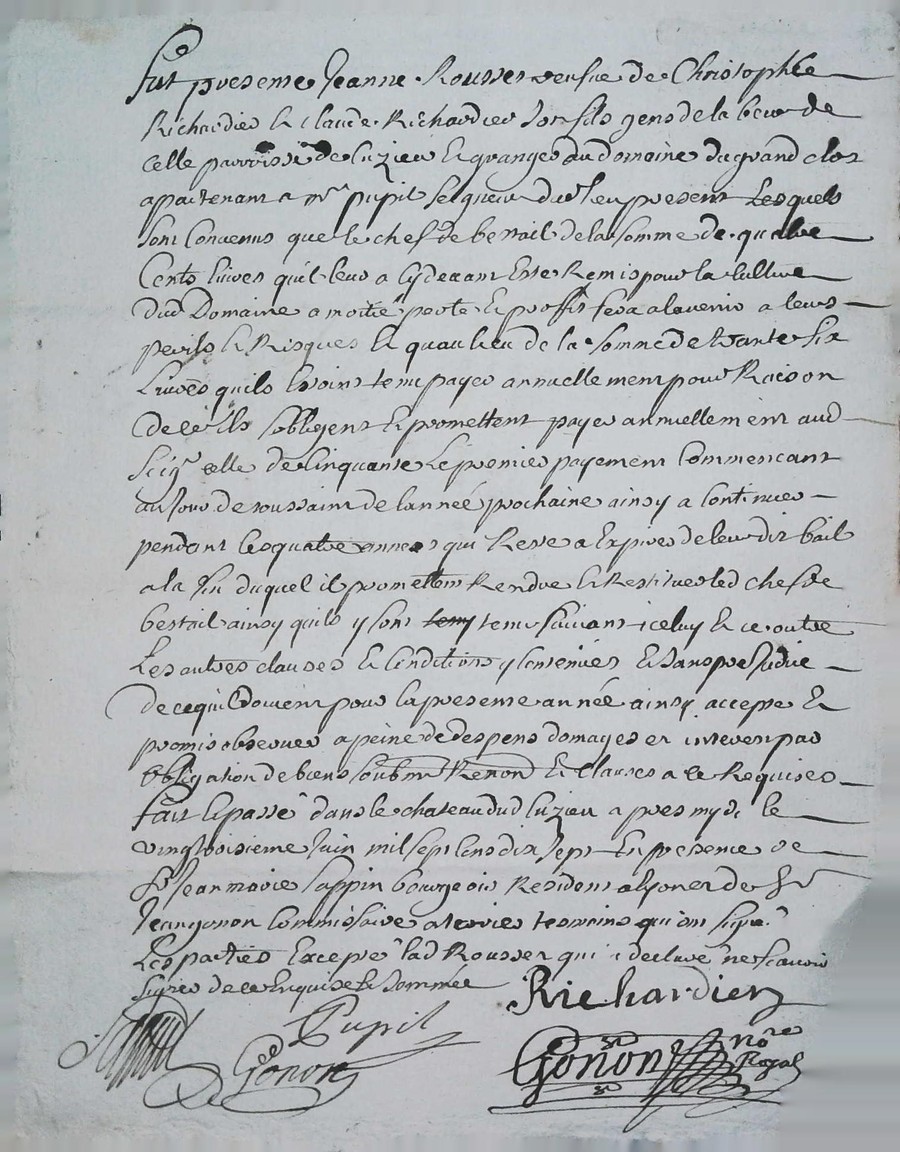 fut presente Jeanne Rousset veufve de Christophle
Richardier & Claude Richardier son fils gens de labeur de
celle parroisse de Luzieu & grangers du domaine du grand clos
apartenant a Mr pupil seigneur dud lieu present Lesquels
sont Convenus que le chef de bestail de la somme de quatre
Cents livres qu'il leur a cy devant Esté Remis pour la Culture
dud Domaine a moitié perte & proffit sera a lavenir a leurs
perils & Risques & qu'au lieu de la somme de trante six
Livres quils Estoint tenu payer annuellement pour Raison
de ce Ils sobligent & promettent payer annuellement aud
Seigr celle de Cinquante Le premier payement Commencant
au jour de toussaint de lannée prochaine ainsy a Continuer
pendant les quatre années qui Reste a Expirer de leur dit bail
a la fin duquel il promettent Rendre & Restituer led chef de
bestail ainsy quils y sont tenu suivant iceluy & ce outre
Les autres clauses & Conditions y Contenues & sans prejudice
de ce qu'il doivent pour la presente année ainsy accepté &
promis observer a peine de despens domages et interest par
obligation de biens soubmn Renon & Clauses a ce Requises
fait & passé dans le chateau dud Luzieu apres mydi le
vingtroisieme Juin mil sept Cens dix sept En presence de
Sr Jean marie Cappin bourgeois Residant a Lyon et de Sr
Jean gonon Commissaire a terrier temoins qui ont signé
Les parties Excepté lad Rousset qui a declaré ne scavoir
signer de ce Enquise & sommée
Richardier
Pupil
Gonon
Gonon nore
Royal